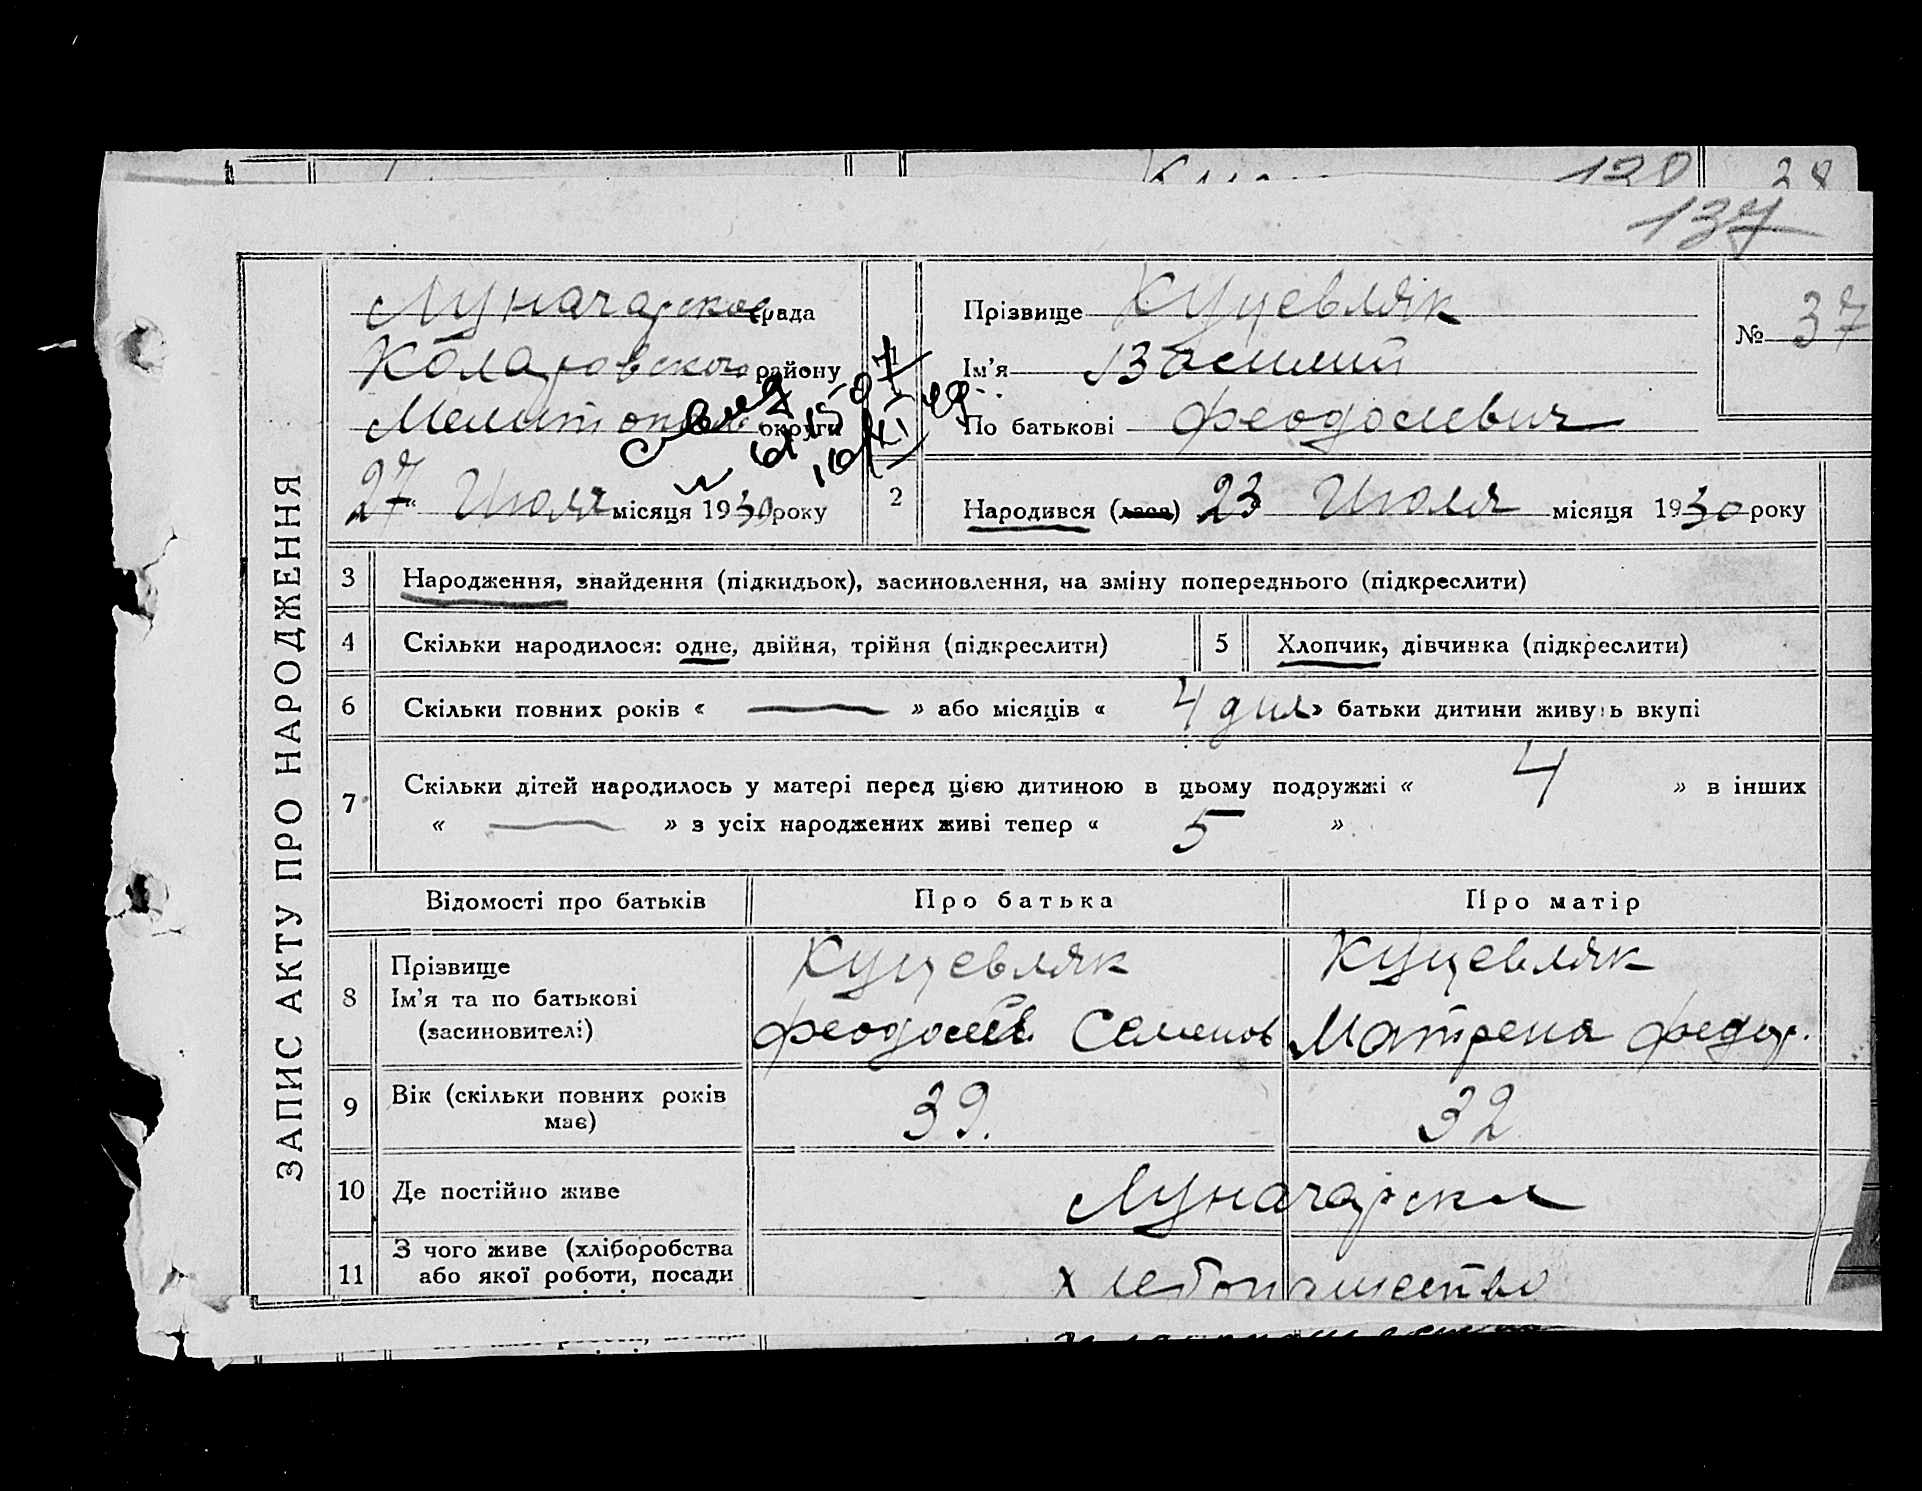 138 38
137
ЗАПИС АКТУ ПРО НАРОДЖЕННЯ
Луначарское рада
Коларовского району
Мелитополь округи
27 " Июля місяця 1930 року
Прізвище Куцевляк
Ім'я Василий
По батькові Феодосиевич
№ 37
2 Народився (лася) 23 Июля місяця 1930 року
3 Народження, знайдення (підкидьок), засиновлення, на зміну попереднього (підкреслити)
4 Скільки народилося: одне, двійня, трійня (підкреслити)
5 Хлопчик, дівчинка (підкреслити)
6 Скільки повних років « — » або місяців « 4 дня » батьки дитини живуть вкупі
7 Скільки дітей народилось у матері перед цією дитиною в цьому подружжі « 4 » в інших
« — » з усіх народжених живі тепер « 5 »
Відомості про батьків Про батька Про матір
8 Прізвище Куцевляк Куцевляк
Ім'я та по батькові Феодосий Семенов Матрена Федор.
(засновителі)
9 Вік (скільки повних років має) 39. 32
10 Де постійно живе Луначарска
11 З чого живе (хліборобства
або якої роботи, посади Хлебопашество